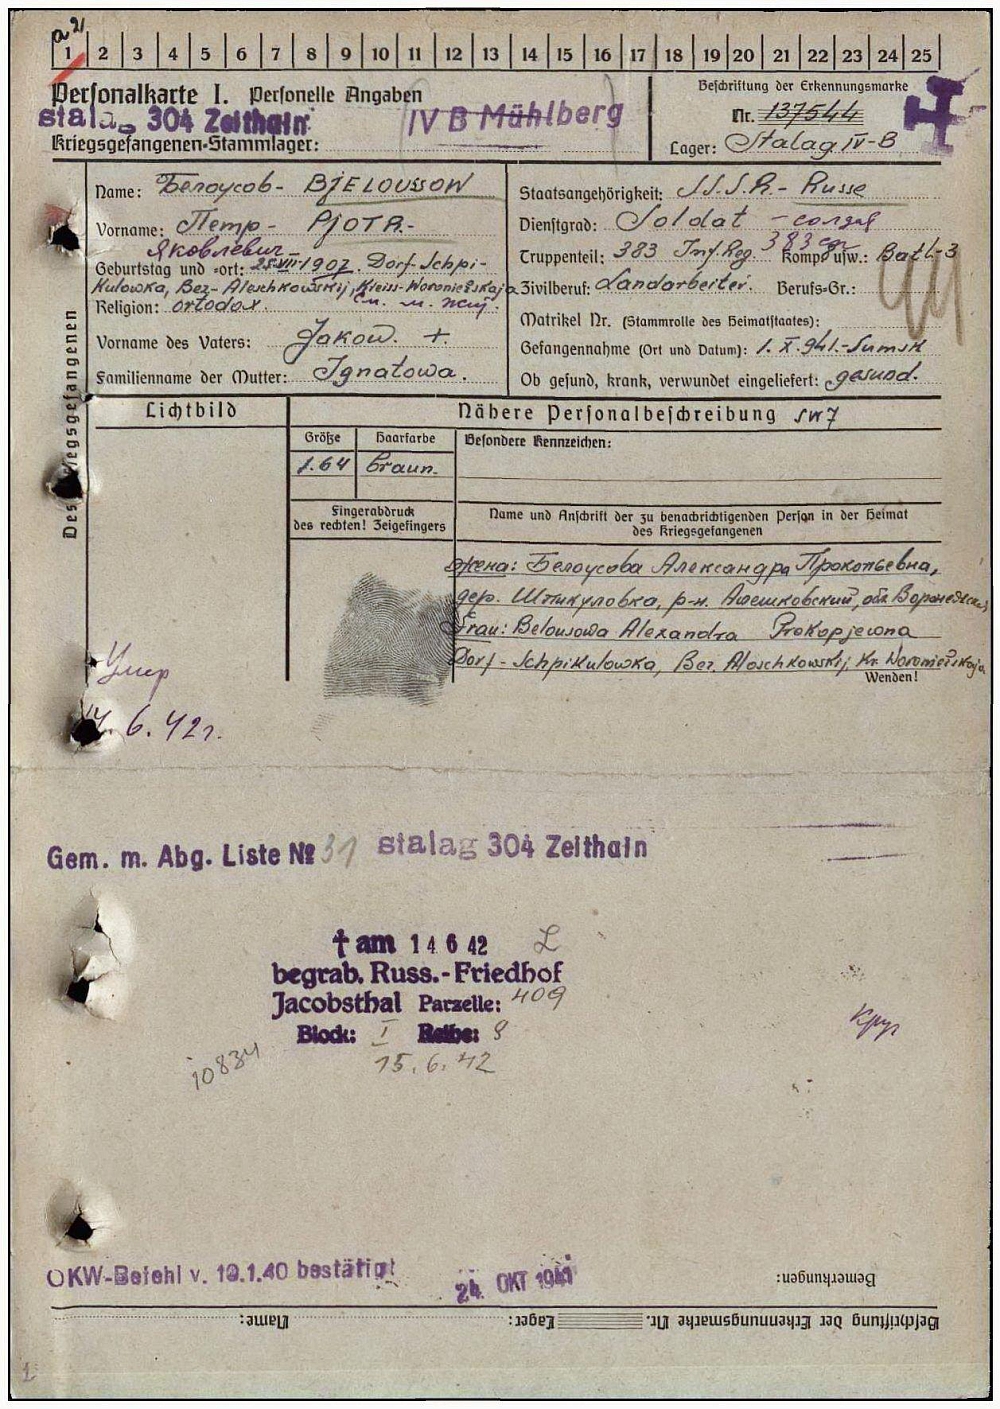 a 21
1 2 3 4 5 6 7 8 9 10 11 12 13 14 15 16 17 18 19 20 21 22 23 24 25
Personalkarte I. Personelle Angaben
Beschriftung der Erkennungsmarke
stalag 304 Zeithain IV B Mühlberg
Nr. 137544
Kriegsgefangenen-Stammlager:
Lager: Stalag IV-B
Des Kriegsgefangenen
Name: Белоусов - BJELOUSSOW
Vorname: Петр - PJOTR.-
Яковлевич
Geburtstag und -ort: 25.VII.1907. Dorf-Schpi-
kulowka, Bez-Aleschkowskij, Kreiss-Woronieżskaja
Religion: ortodox.
Vorname des Vaters: Jakow. +
Familienname der Mutter: Ignatowa.
Staatsangehörigkeit: S.S.S.R.- Russe
Dienstgrad: Soldat - солдат
383 сп
Truppenteil: 383 Inf. Reg. Komp. usw.: Batl-3
Zivilberuf: Landarbeiter. Berufs-Gr.:
Matrikel Nr. (Stammrolle des Heimatstaates):
Gefangennahme (Ort und Datum): 1.X.941.-Sumsk
Ob gesund, krank, verwundet eingeliefert: gesund.
Lichtbild
Nähere Personalbeschreibung
Größe Haarfarbe Besondere Kennzeichen:
1.64 braun.
Fingerabdruck
des rechten! Zeigefingers
Name und Anschrift der zu benachrichtigenden Person in der Heimat
des Kriegsgefangenen
жена: Белоусова Александра Прокопьевна,
дер. Шпикуловка, р-н. Алешковский, обл Воронежская
Frau: Belousowa Alexandra Prokopjewna
Dorf-Schpikulowka, Bez. Aloschkowskij Kr. Woronieżskaja
Wenden!
Умер
14. 6. 42г.
Gem. m. Abg. Liste № 31 stalag 304 Zeithain
† am 14 6 42
begrab. Russ.-Friedhof
Jacobsthal Parzelle: 409
Block: I Reihe: 8
15. 6. 42
10834
OKW-Befehl v. 19.1.40 bestätigt
24. OKT 1941
Bemerkungen:
Beschriftung der Erkennungsmarke Nr. Lager: Name:
1